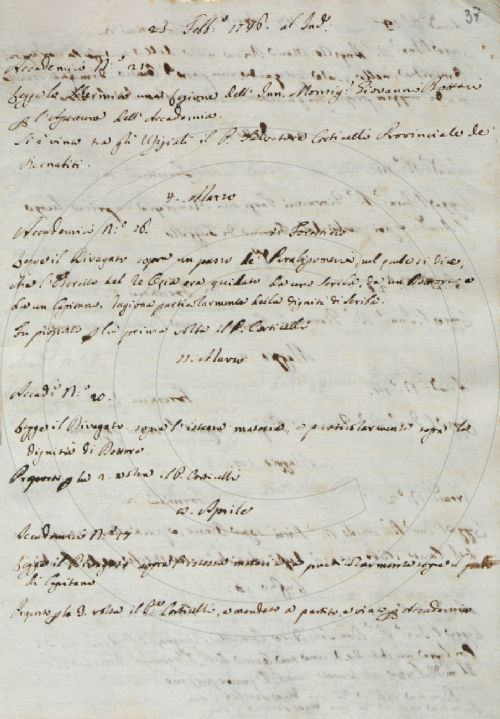 37
23. Febb.º 1746. al Ind.
Accademici N.º 21
Legge la una lezione dell' Inn. Monsig.r Giovanni Bottari
p l'Apertura dell' Accademia.
Si è vinto tra gli Ufiziali il P. Salvatore Corticelli Provinciale de
Barnabiti.
4. Marzo
Accademici N.º 16.
Legge il Divagato sopra un passo de Paralipomeni, nel quale si dice,
che l'Esercito del Re Ozia era guidato da uno Scriba, da un Dottore, e
da un Capitano. ragiona particolarmente della dignità di Scriba.
Fu proposto p la prima volta il P. Corticelli
11. Marzo
Accad.i N.º 20.
Legge il Divagato sopra l'istessa materia, e particolarmente sopra la
dignità di Dottore.
Proposto p la 2. volta il P. Corticelli
Aprile
Accademici N.º 19
Legge il Divagato sopra l'istessa materia e particolarmente sopra il
di Capitano
Proposto p la 3. volta il Corticelli, e mandato a partito, e vinto p Accademico